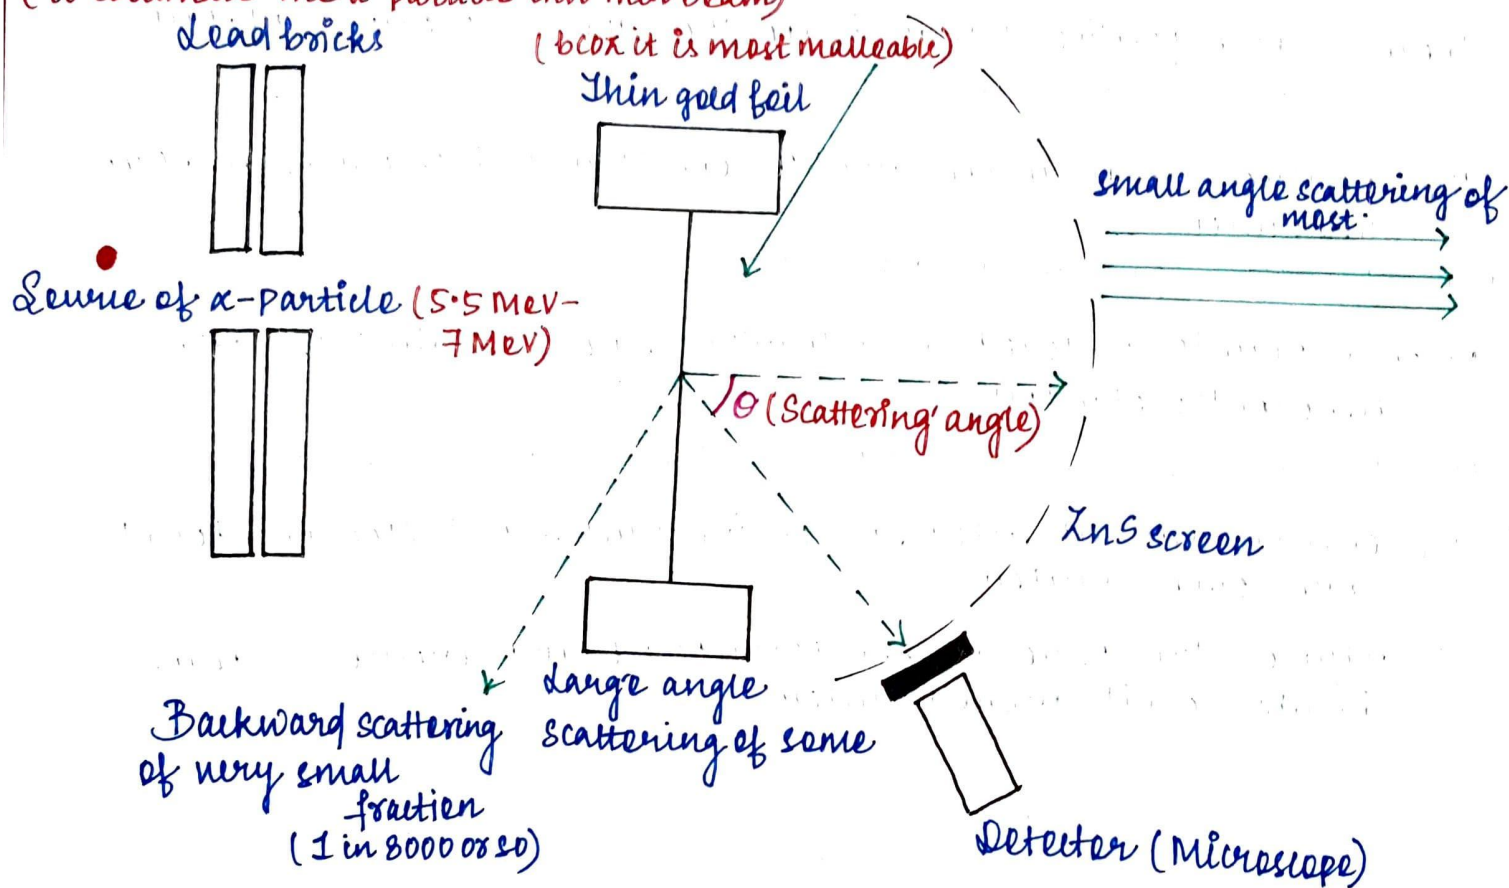 Lead bricks
(bcoz it is most malleable)
Thin gold foil
small angle scattering of
most.
Source of α-particle (5.5 MeV-
7 MeV)
θ (Scattering angle)
ZnS screen
Large angle
scattering of some
Backward scattering
of very small
fraction
(1 in 8000 or so)
Detector (Microscope)